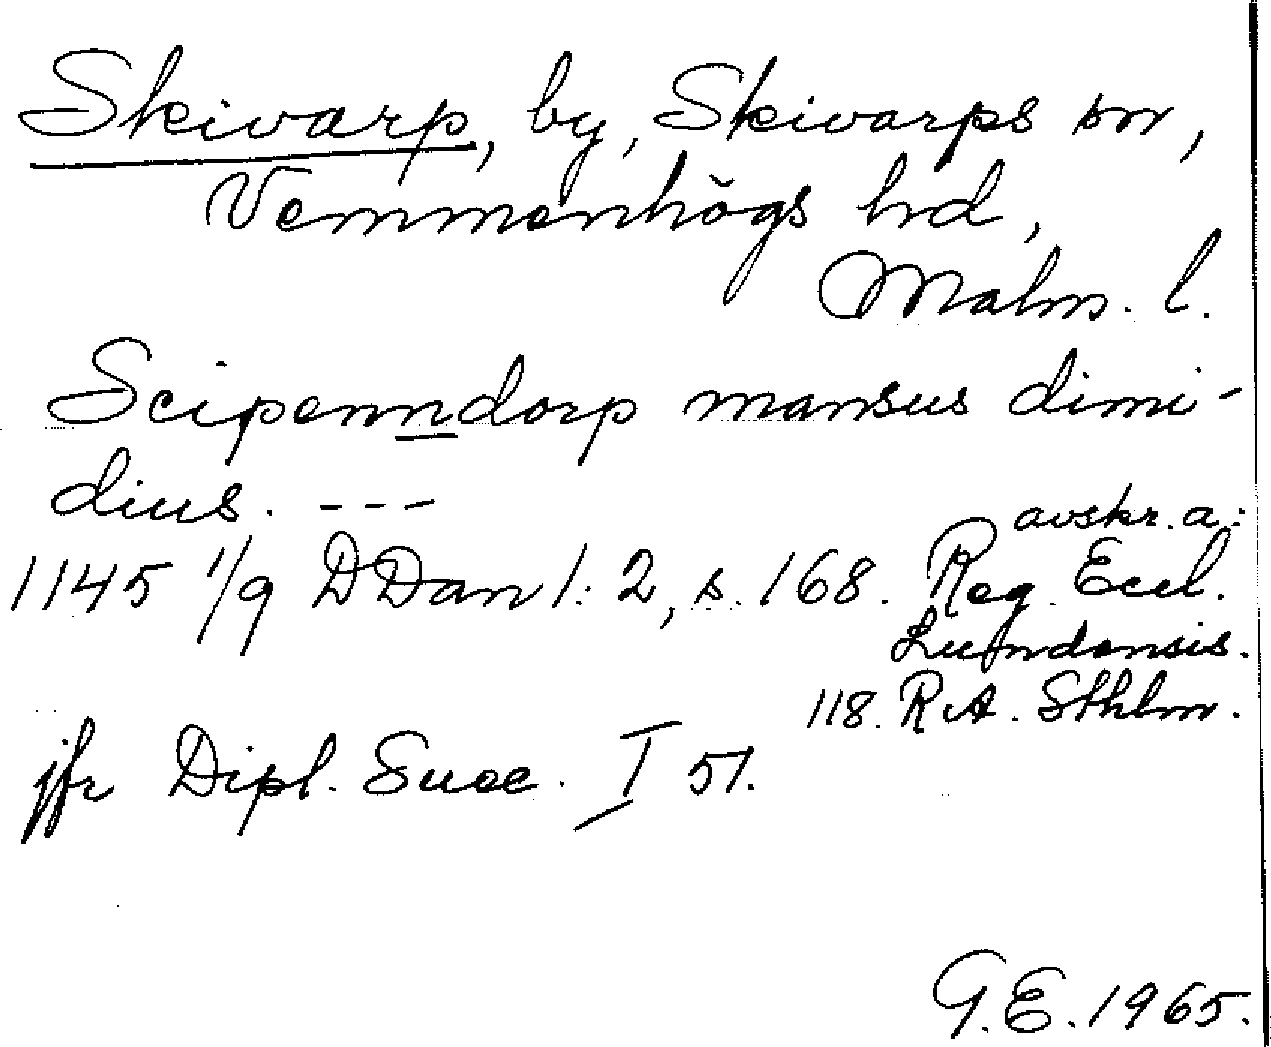 Skivarp, by, Skivarps sn,
Vemmenhögs hd,
Malm. l.
Scipenndorp mansus dimi-
dius. ---
avskr. a:
1145 1/9 DDan 1:2, s. 168. Reg. Eccl.
Lundensis.
118. RA. Sthlm.
jfr Dipl. Suec. I 51.
G.E. 1965.